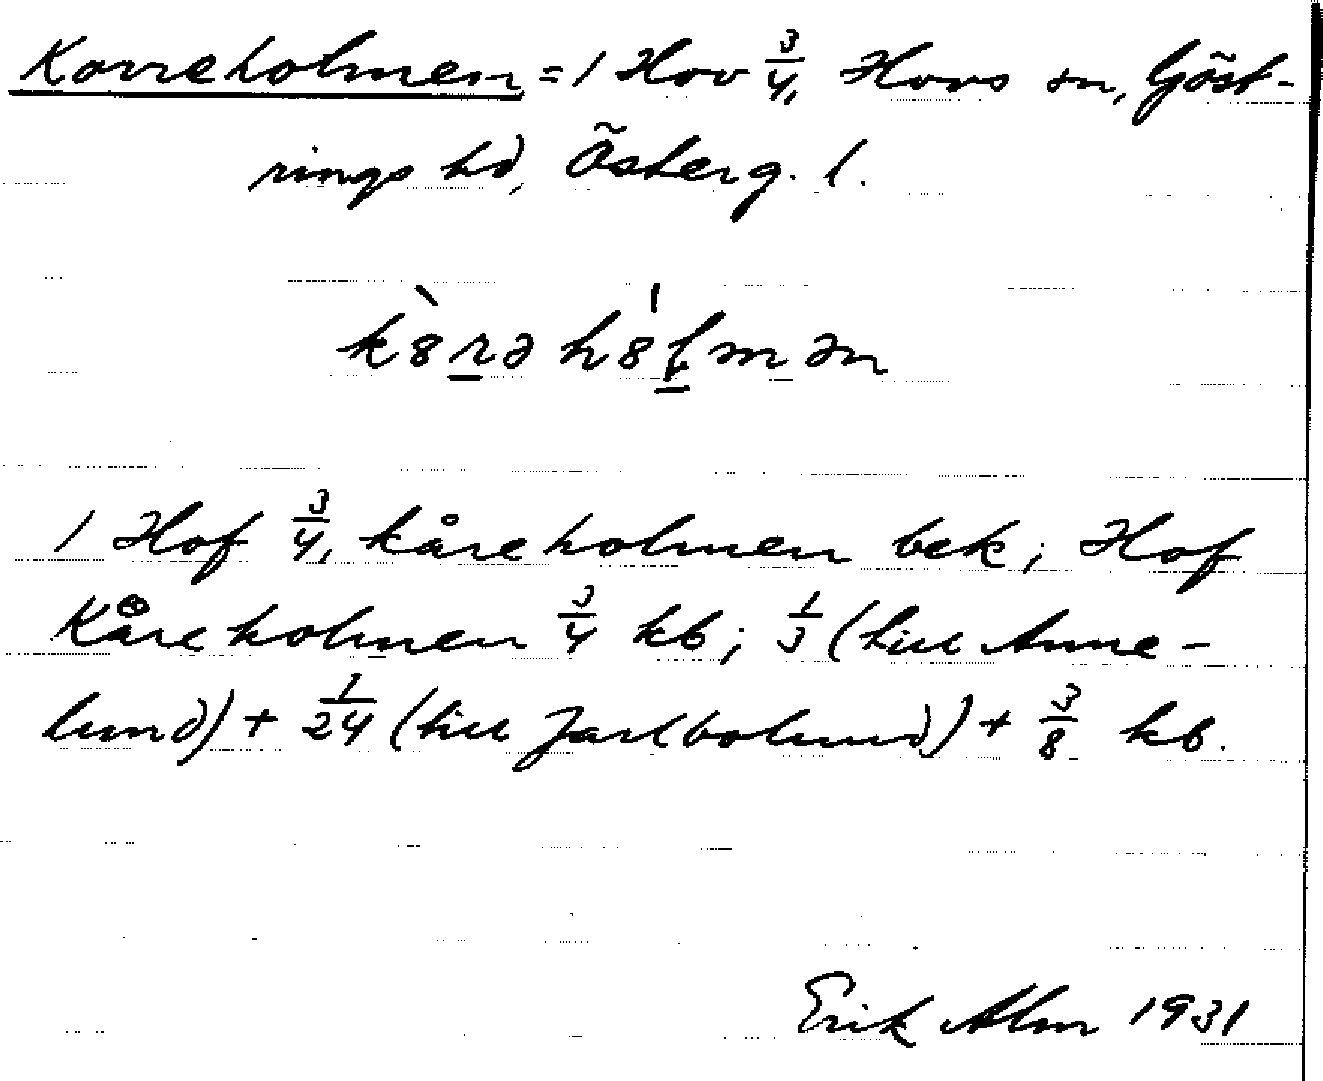 Korreholmen = 1 Hov 3/4, Hovs sn, Göst-
rings hd, Österg. l.
k8̀rə h8́lmən
1 Hof 3/4, Kåreholmen bek; Hof
Kåreholmen 3/4 kb; 1/3 (till Anne-
lund) + 1/24 (till Jarlbolund) + 3/8 kb.
Erik Alm 1931